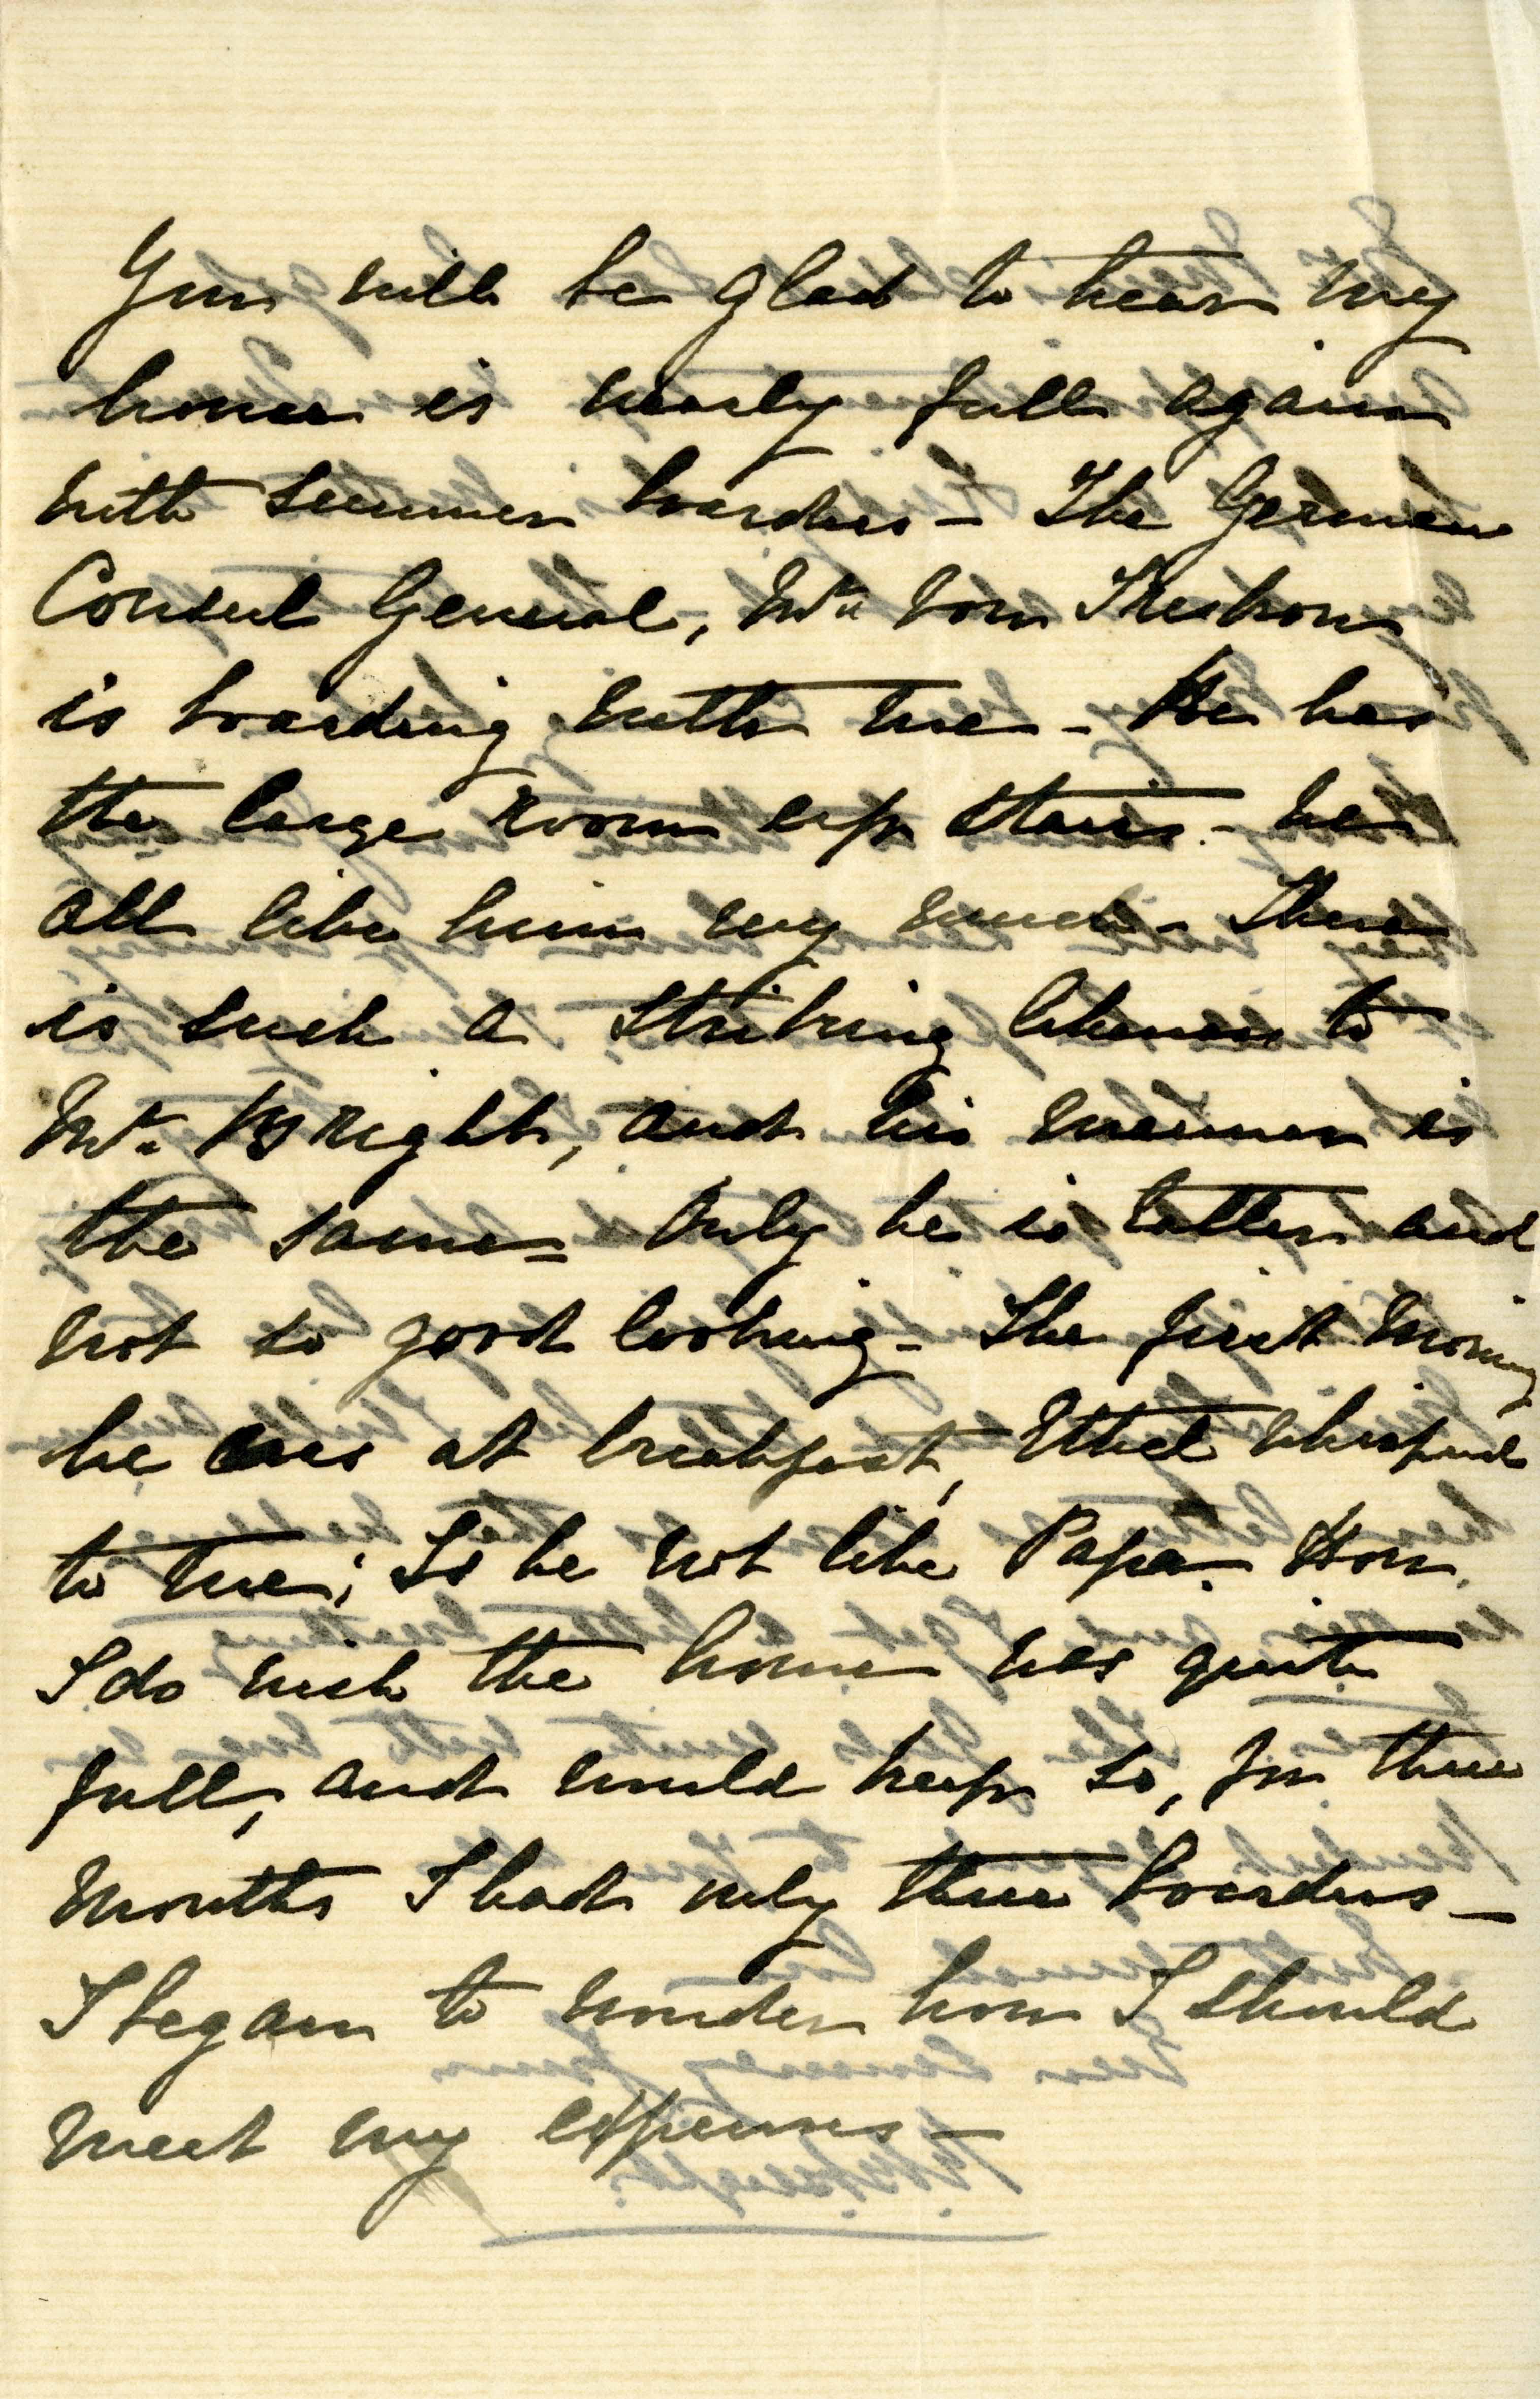 You will be glad to hear my
house is nearly full again
with summer boarders – The German
Consul General, Mr. von Treskow
is boarding with me – He has
the large room up stairs. – We
all like him very much – There
is such a striking likeness to
Mr. Wright, and his manner is
the same – Only he is taller and
not so good looking – The first morning
he was at breakfast, Ethel whispered
to me; Is he not like Papa. How
I do wish the house was quite
full, and would keep so, for three
months I had only three boarders –
I began to wonder how I should
meet my expenses –